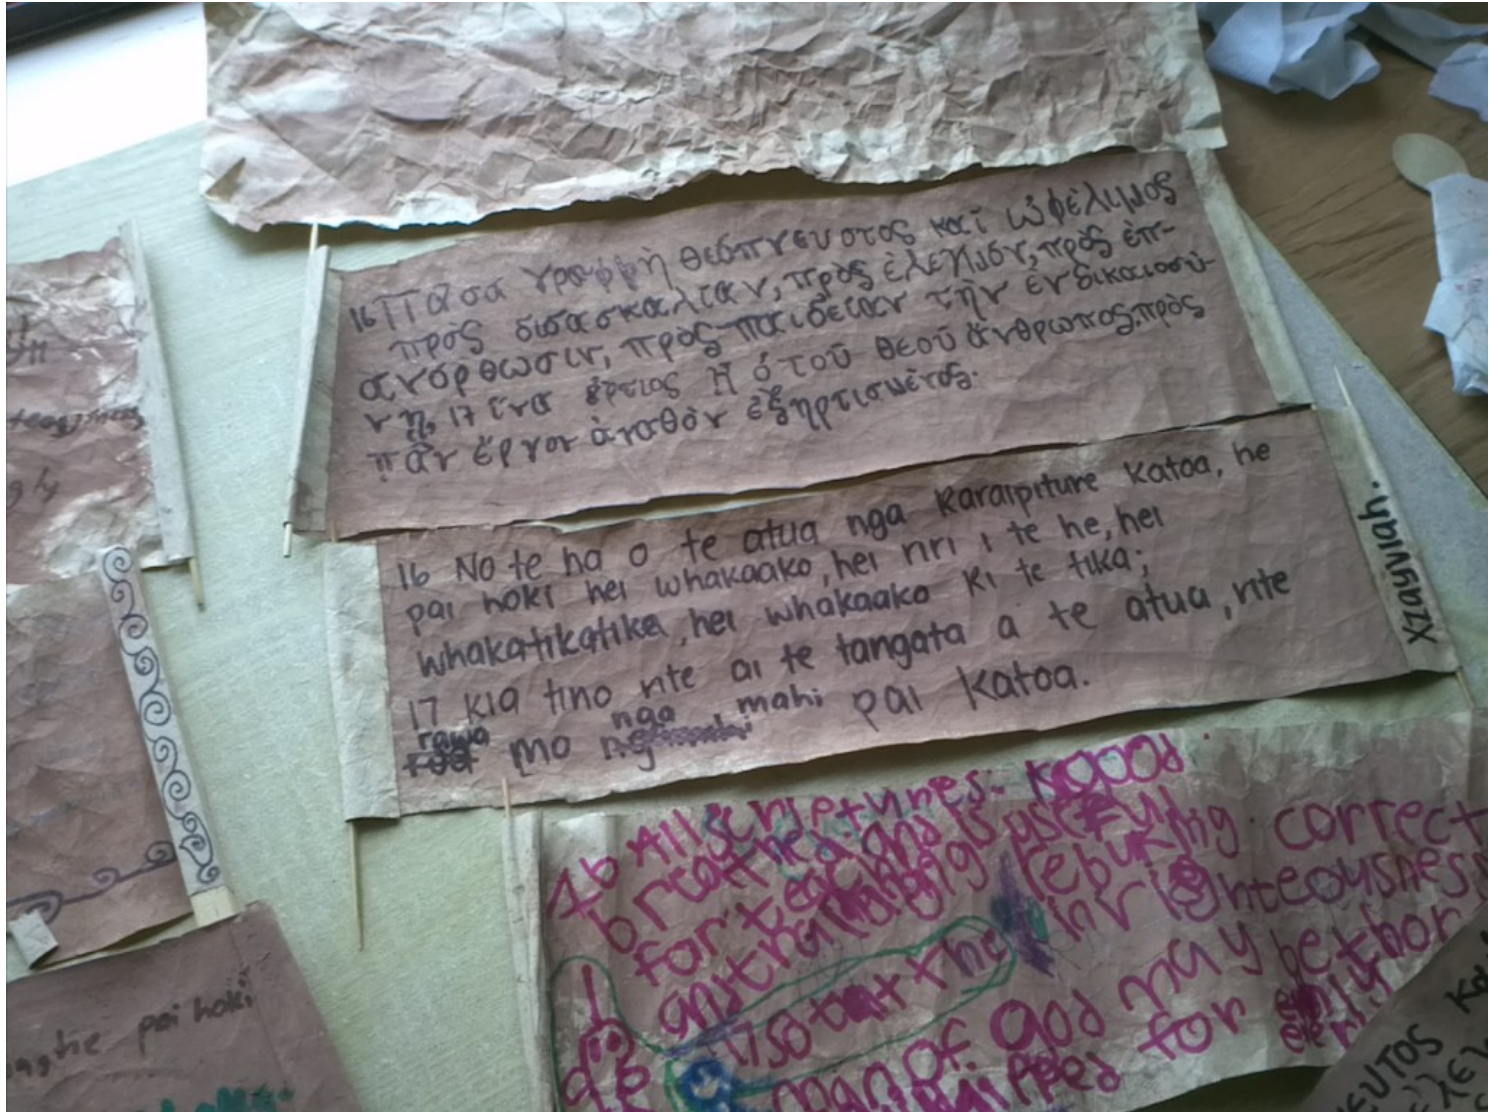 16 Πᾶσα γραφφὴ θεόπνευστος καὶ ὠφέλιμος
πρὸς διδασκαλίαν, πρὸς ἐλεγμόν, πρὸς ἐπ-
ανόρθωσιν, πρὸς παιδείαν τὴν ἐν δικαιοσύ-
νῃ, 17 ἵνα ἄρτιος ᾖ ὁ τοῦ θεοῦ ἄνθρωπος, πρὸς
πᾶν ἔργον ἀγαθὸν ἐξηρτισμένος.
16 No te ha o te atua nga Karaipiture katoa, he
pai hoki hei whakaako, hei riri i te he, hei
whakatikatika, hei whakaako ki te tika;
17 kia tino rite ai te tangata a te atua, rite
rawa mo nga mahi pai katoa.
Xzayviah.
16 All scrietunes. is good
breathed and is useful
for teaching rebuking. correct
and training in righteousness
17 so that the
man of god may be thor
for every
pai hoki